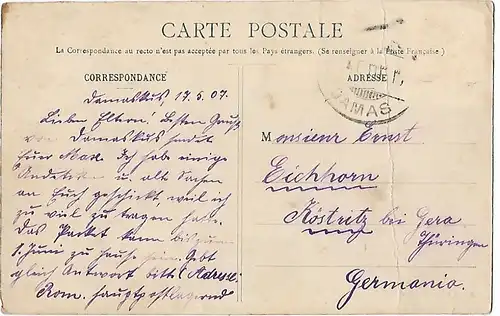 CARTE POSTALE
La Correspondance au recto n'est pas acceptée par tous les Pays étrangers. (Se renseigner à la Poste Française)
CORRESPONDANCE
Damaskus, 17.5.07.
Lieben Eltern! Besten Gruß
von Damaskus sendet
Euer Max. Ich habe einige
Andenken u. alte Sachen
an Euch geschickt, weil ich
zu viel zu tragen habe.
Das Packet kann bis zum
1. Juni zu Hause sein. Gebt
gleich Antwort bitte (Adresse:
Rom. hauptpostlagernd
ADRESSE
DAMAS
Monsieur Ernst
Eichhorn
Köstritz bei Gera
Thüringen
Germania.